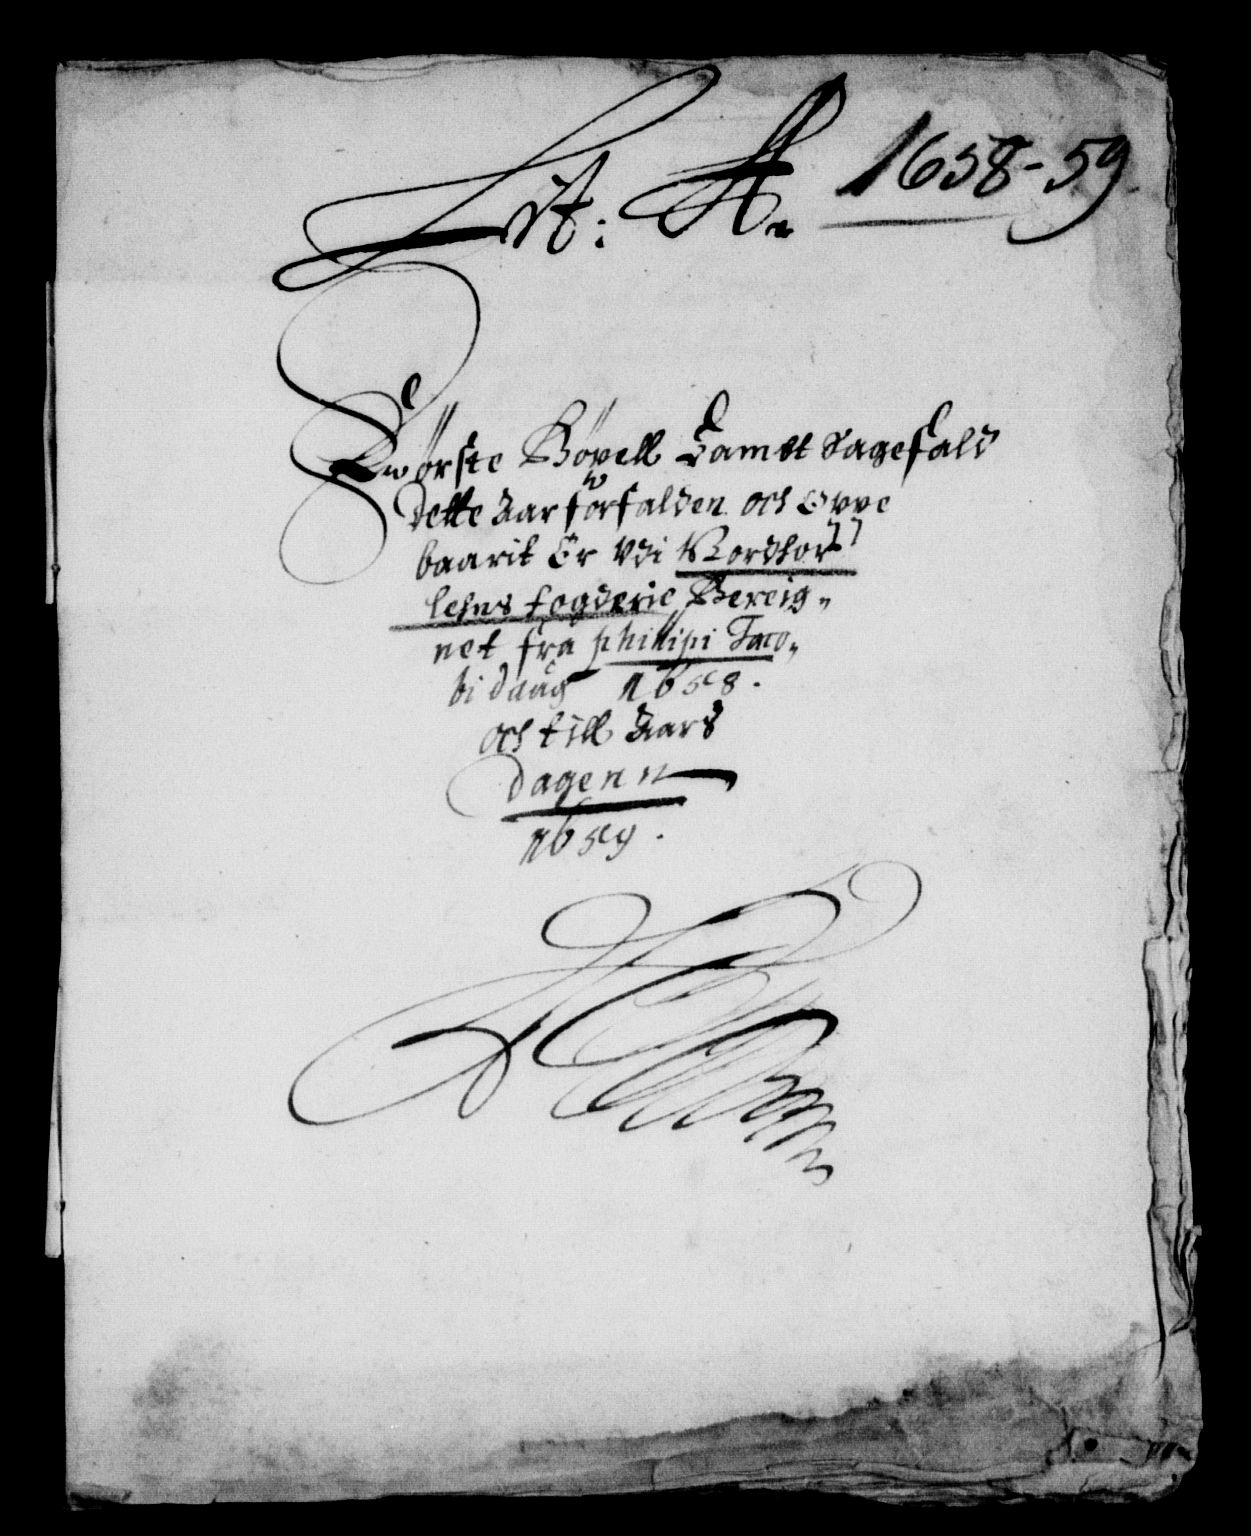 Lit: A. 1658-59
Första Böxell Sampt Sagefald
dette Aar forfalden och Oppe
baarit Er Vdi Nordhor
lehns fogderie Bereig„
net fra phillipi Jaco„
bi daug 1658.
och till Aars
dagenn
1659.